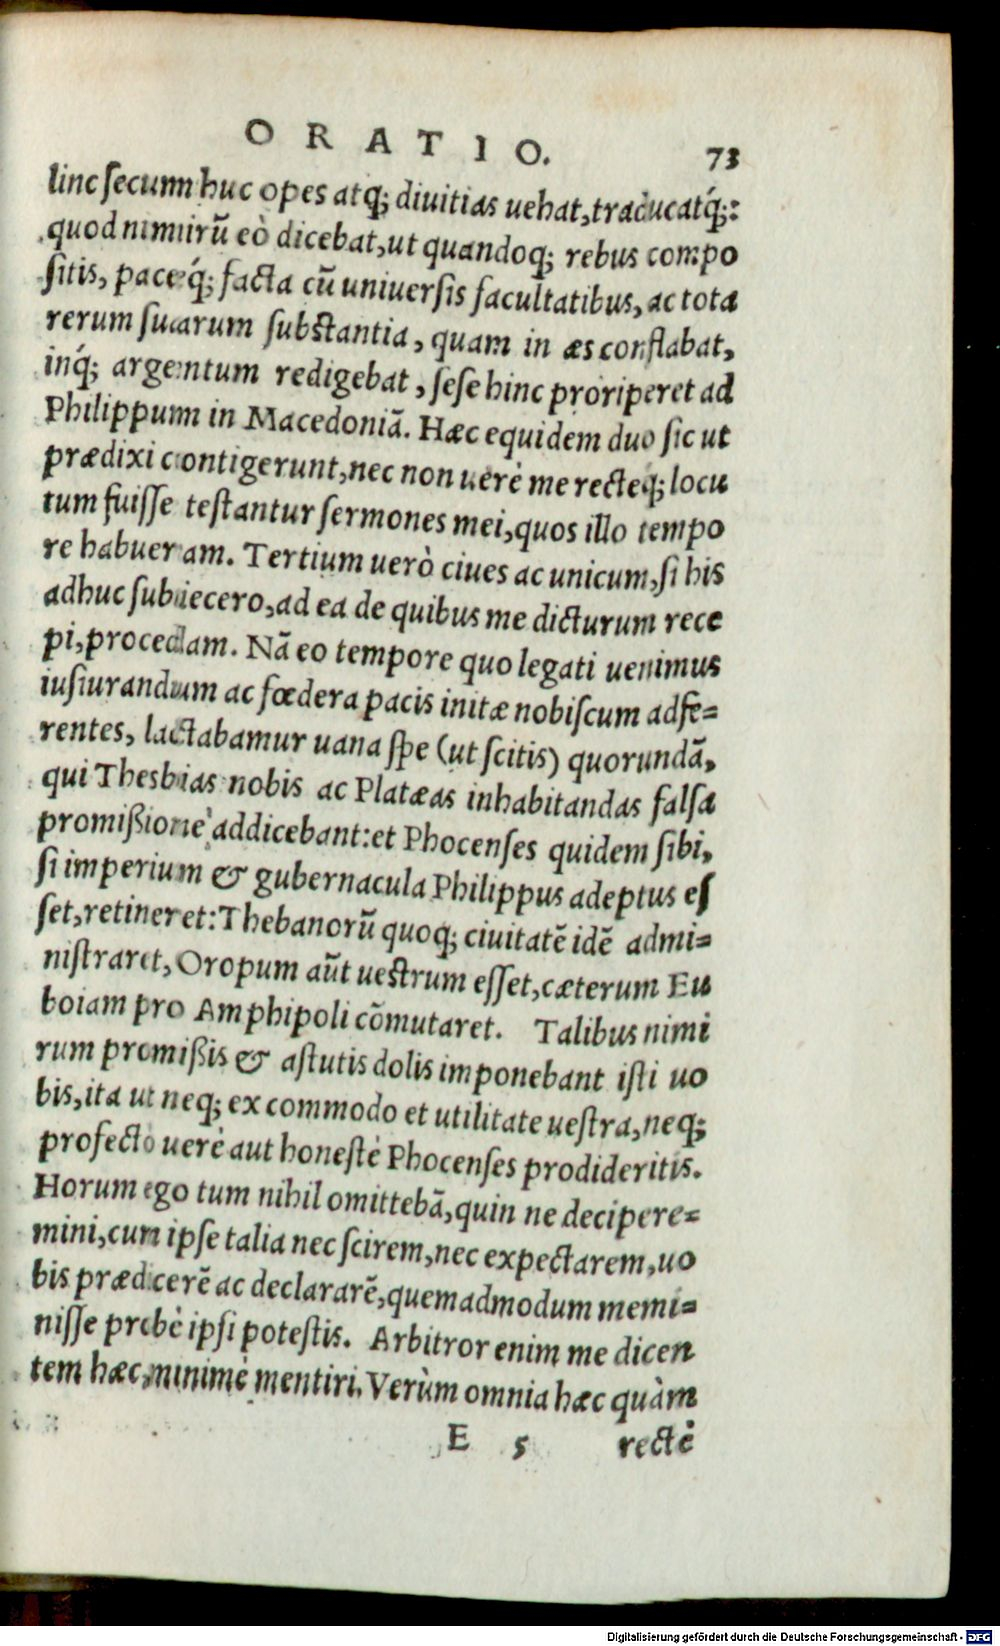 ORATIO. 73
linc secum huc opes atq; diuitias uehat, traducatq́;:
quod nimirũ eò dicebat, ut quandoq; rebus compo
sitis, paceq́; facta cũ uniuersis facultatibus, ac tota
rerum suarum substantia, quam in æs conflabat,
inq́; argentum redigebat, sese hinc proriperet ad
Philippum in Macedoniã. Hæc equidem duo sic ut
prædixi contigerunt, nec non uerè me recteq́; locu
tum fuisse testantur sermones mei, quos illo tempo
re habueram. Tertium uerò ciues ac unicum, si his
adhuc subiecero, ad ea de quibus me dicturum rece
pi, procedam. Nã eo tempore quo legati uenimus
iusiurandum ac fœdera pacis initæ nobiscum adfe=
rentes, lactabamur uana spe (ut scitis) quorundã,
qui Thesbias nobis ac Platæas inhabitandas falsa
promißione addicebant: et Phocenses quidem sibi,
si imperium & gubernacula Philippus adeptus es
set, retineret: Thebanorũ quoq; ciuitatẽ idẽ admi=
nistraret, Oropum aũt uestrum esset, cæterum Eu
boiam pro Amphipoli cõmutaret. Talibus nimi
rum promißis & astutis dolis imponebant isti uo
bis, ita ut neq; ex commodo et utilitate uestra, neq;
profecto uerè aut honestè Phocenses prodideritis.
Horum ego tum nihil omittebã, quin ne decipere=
mini, cum ipse talia nec scirem, nec expectarem, uo
bis prædicerẽ ac declararẽ, quemadmodum memi=
nisse probè ipsi potestis. Arbitror enim me dicen
tem hæc, minimè mentiri. Verùm omnia hæc quàm
E 5 rectè
Digitalisierung gefördert durch die Deutsche Forschungsgemeinschaft - DFG